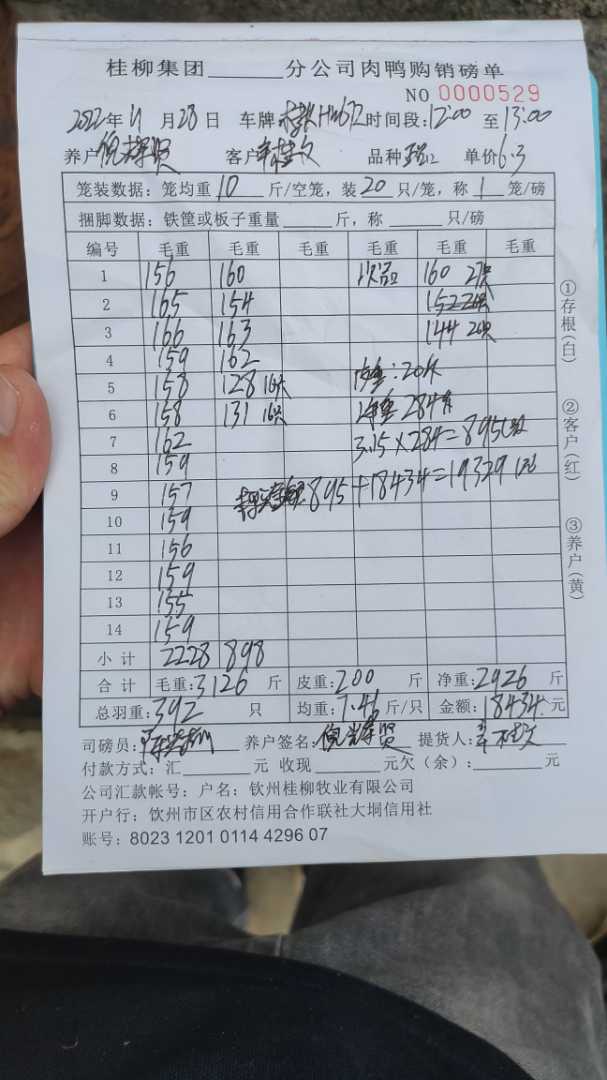 桂柳集团______分公司肉鸭购销磅单
NO 0000529
2022年11月28日 车牌 时间段:12:00 至13:00
养户 客户 品种 单价6.3
笼装数据：笼均重 10 斤/空笼，装 20 只/笼，称 1 笼/磅
捆脚数据：铁筐或板子重量______斤，称______只/磅
编号 毛重 毛重 毛重 毛重 毛重 毛重
1 156 160 次品 160 27只
2 165 154
3 166 163 144 20只
4 159 162
5 158 128 16只 皮重:20斤
6 158 131 16只 净重 284斤
7 162 3.15×284=895
8 159
9 157 895+18434=19329
10 159
11 156
12 159
13 155
14 159
小计 2228 898
合计 毛重:3126 斤 皮重:200 斤 净重:2926 斤
总羽重:392 只 均重:7.46 斤/只 金额:18434 元
司磅员: 养户签名: 提货人:
付款方式：汇______元 收现______元欠（余）:______元
公司汇款帐号：户名：钦州桂柳牧业有限公司
开户行：钦州市区农村信用合作联社大垌信用社
账号：8023 1201 0114 4296 07
①存根(白)
②客户(红)
③养户(黄)